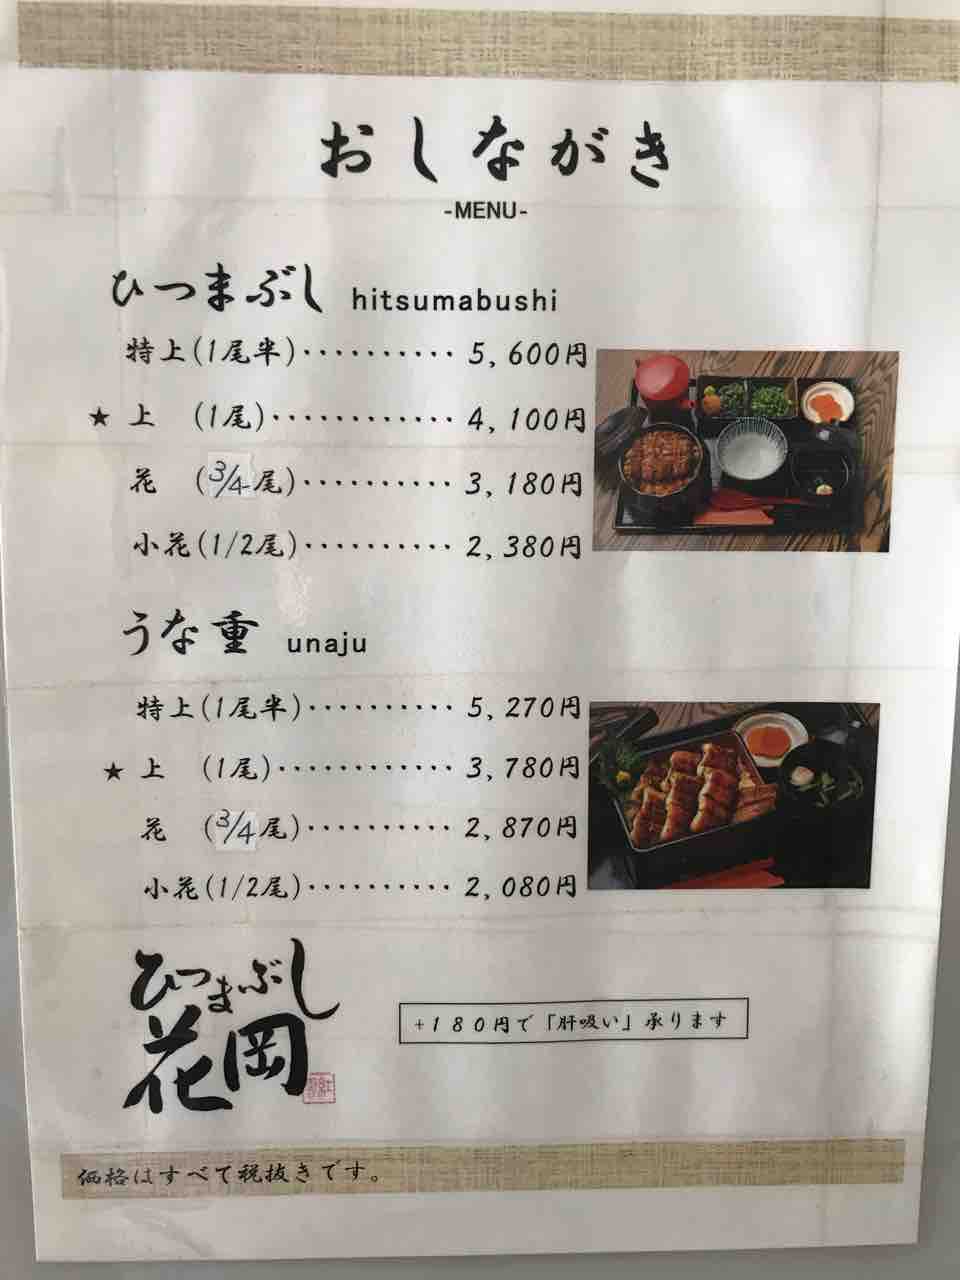 おしながき
-MENU-
ひつまぶし hitsumabushi
特上(1尾半)・・・・・・・・・・ 5,600円
★ 上 (1尾)・・・・・・・・・・・・ 4,100円
花 (3/4尾)・・・・・・・・・・ 3,180円
小花(1/2尾)・・・・・・・・・・ 2,380円
うな重 unaju
特上(1尾半)・・・・・・・・・・ 5,270円
★ 上 (1尾)・・・・・・・・・・・・ 3,780円
花 (3/4尾)・・・・・・・・・・ 2,870円
小花(1/2尾)・・・・・・・・・・ 2,080円
ひつまぶし
花岡
+180円で「肝吸い」承ります
価格はすべて税抜きです。